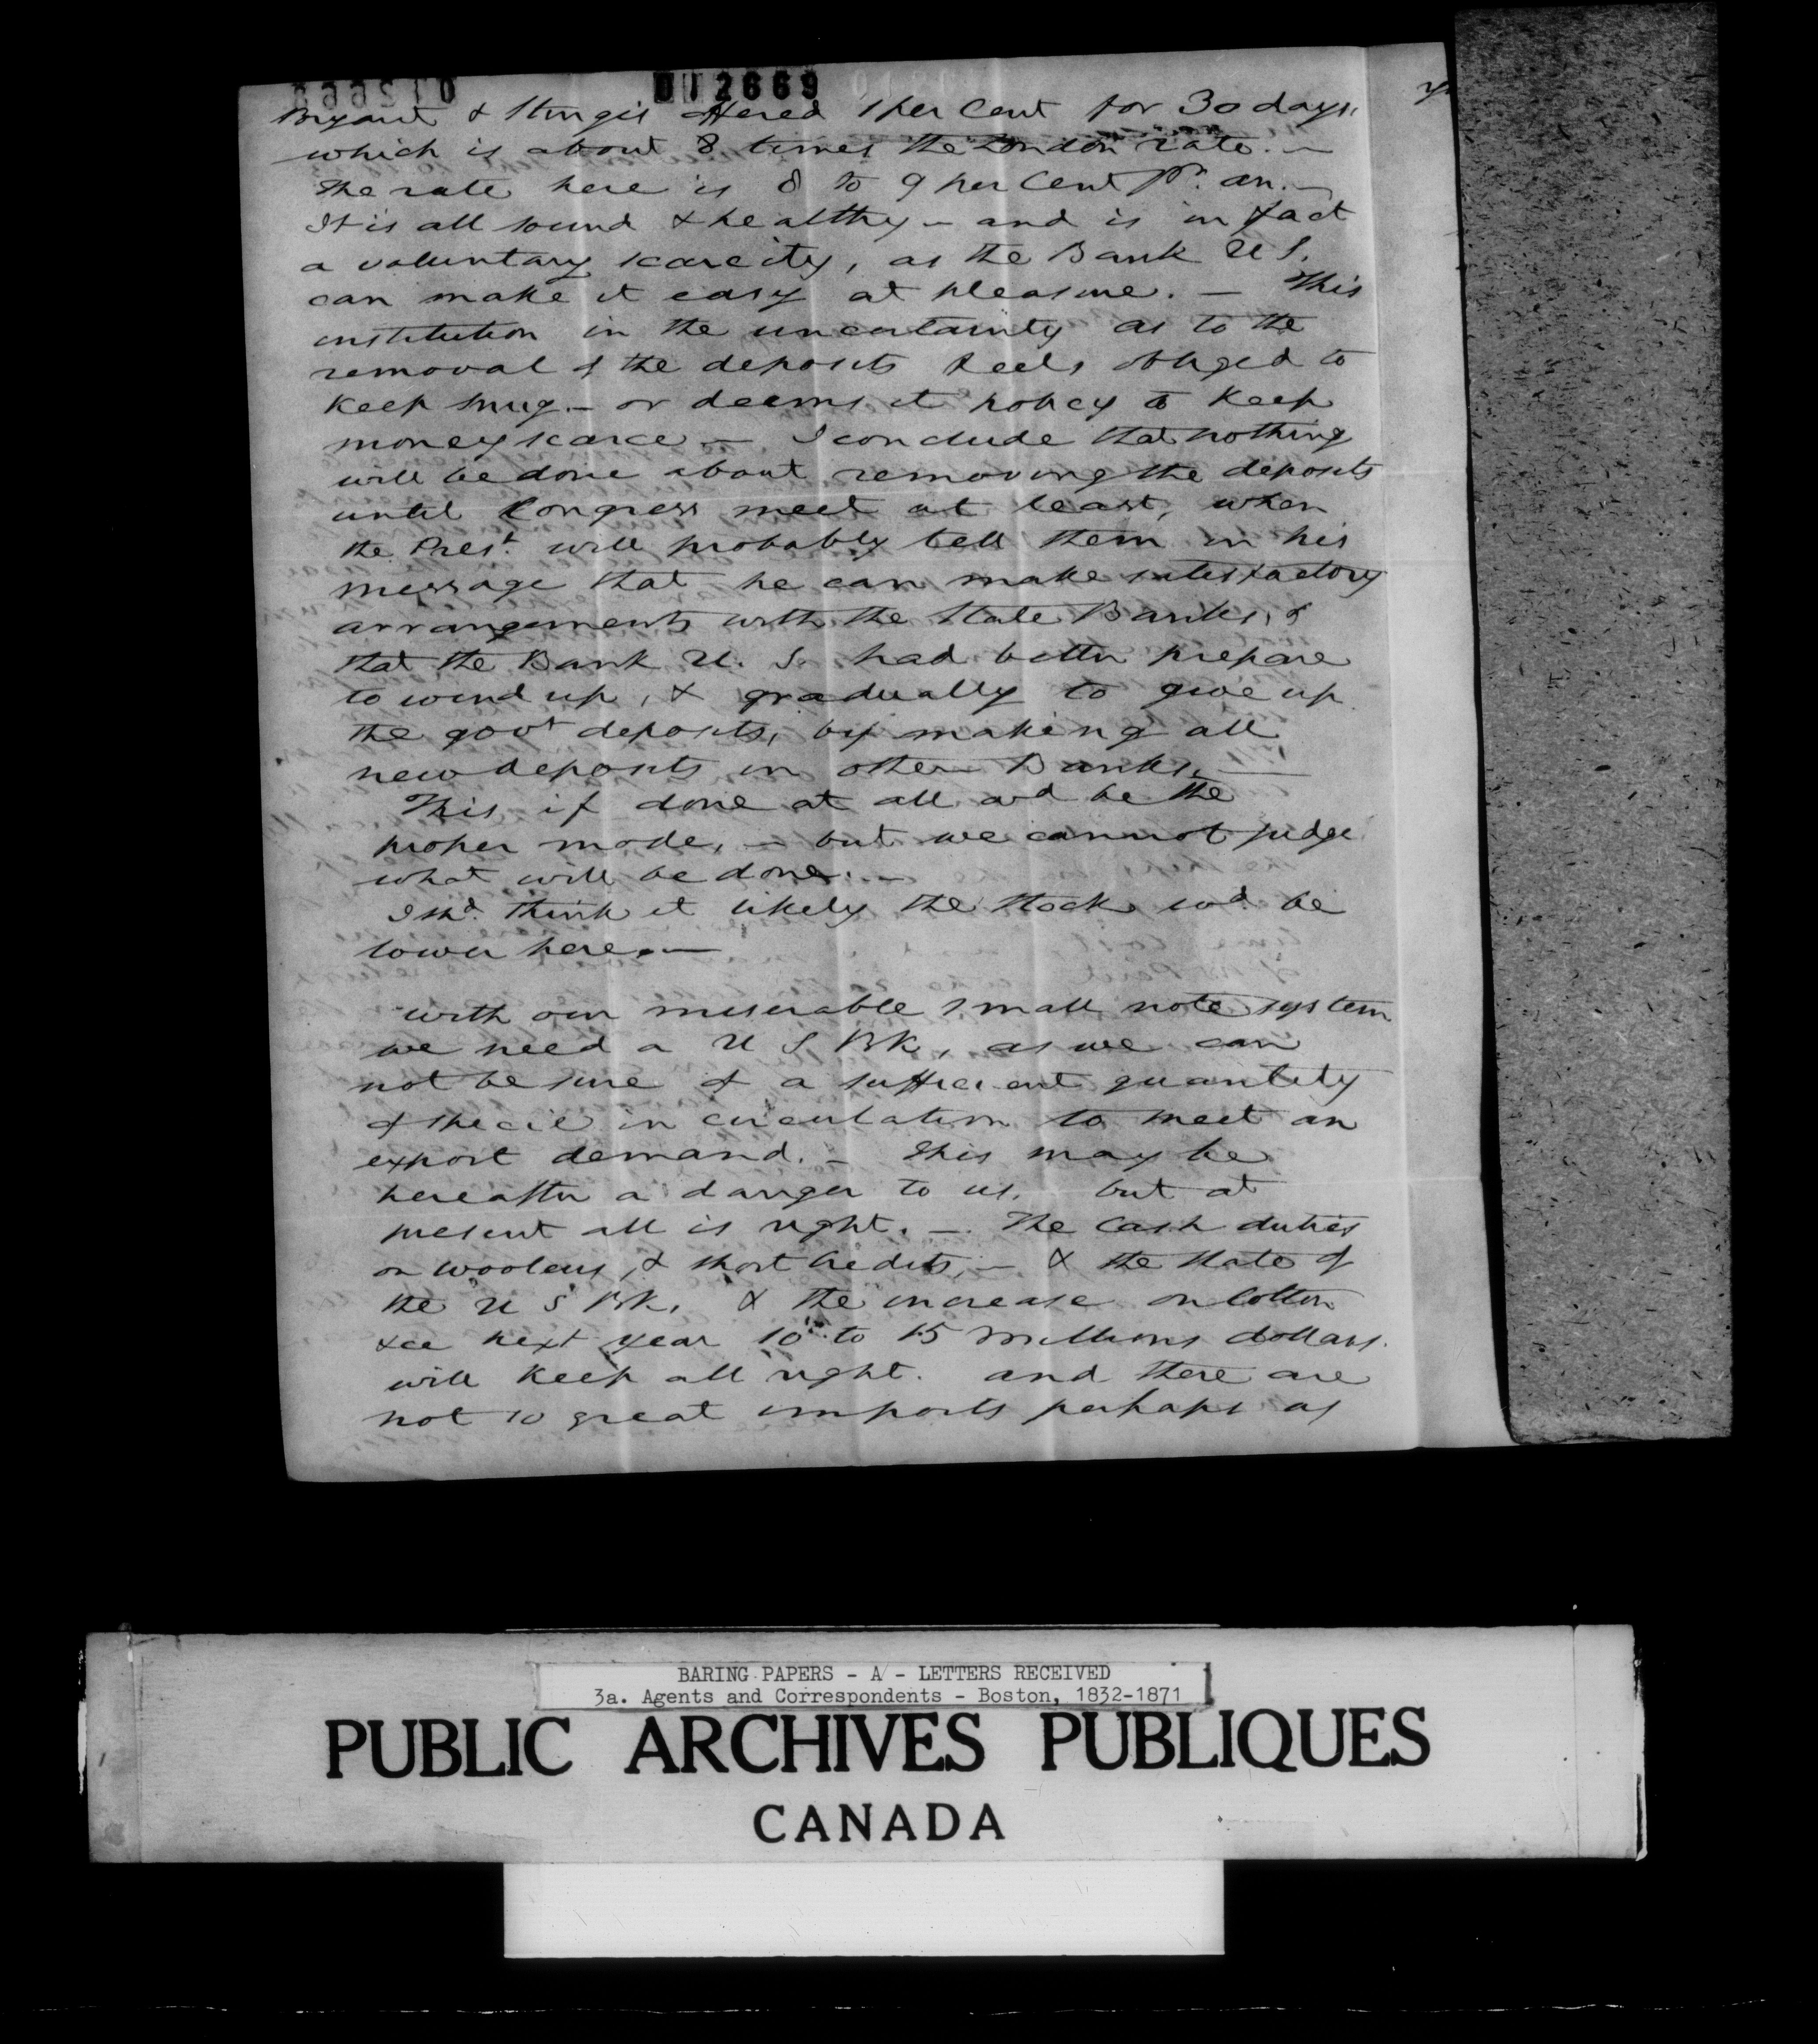 012669
Bryant & Sturgis offered 1 per Cent for 30 days,
which is about 8 times the London rate. —
The rate here is 8 to 9 per Cent Pr. an. —
It is all sound & healthy — and is in fact
a voluntary scarcity, as the Bank U S.
can make it easy at pleasure. — This
institution in the uncertainty as to the
removal of the deposits feels obliged to
keep snug — or deems it policy to keep
money scarce — I conclude that nothing
will be done about removing the deposits
until Congress meet at least, when
the Prest. will probably tell them in his
message that he can make satisfactory
arrangements with the State Banks, &
that the Bank U. S. had better prepare
to wind up, & gradually to give up
the govt deposits, by making all
new deposits in other Banks. —
This if done at all wd be the
proper mode, — but we cannot judge
what will be done. —
I shd. think it likely the stock wod. be
lower here. —
with our miserable small note system
we need a U S Bk, as we can
not be sure of a sufficient quantity
of specie in circulation to meet an
export demand. — This may be
hereafter a danger to us, but at
present all is right. — The Cash duties
on woolens, & short credits, — & the state of
the U S Bk, & the increase on Cotton
&ce next year 10 to 15 millions dollars.
will keep all right. and there are
not so great imports perhaps as
BARING PAPERS - A - LETTERS RECEIVED
3a. Agents and Correspondents - Boston, 1832-1871
PUBLIC ARCHIVES PUBLIQUES
CANADA